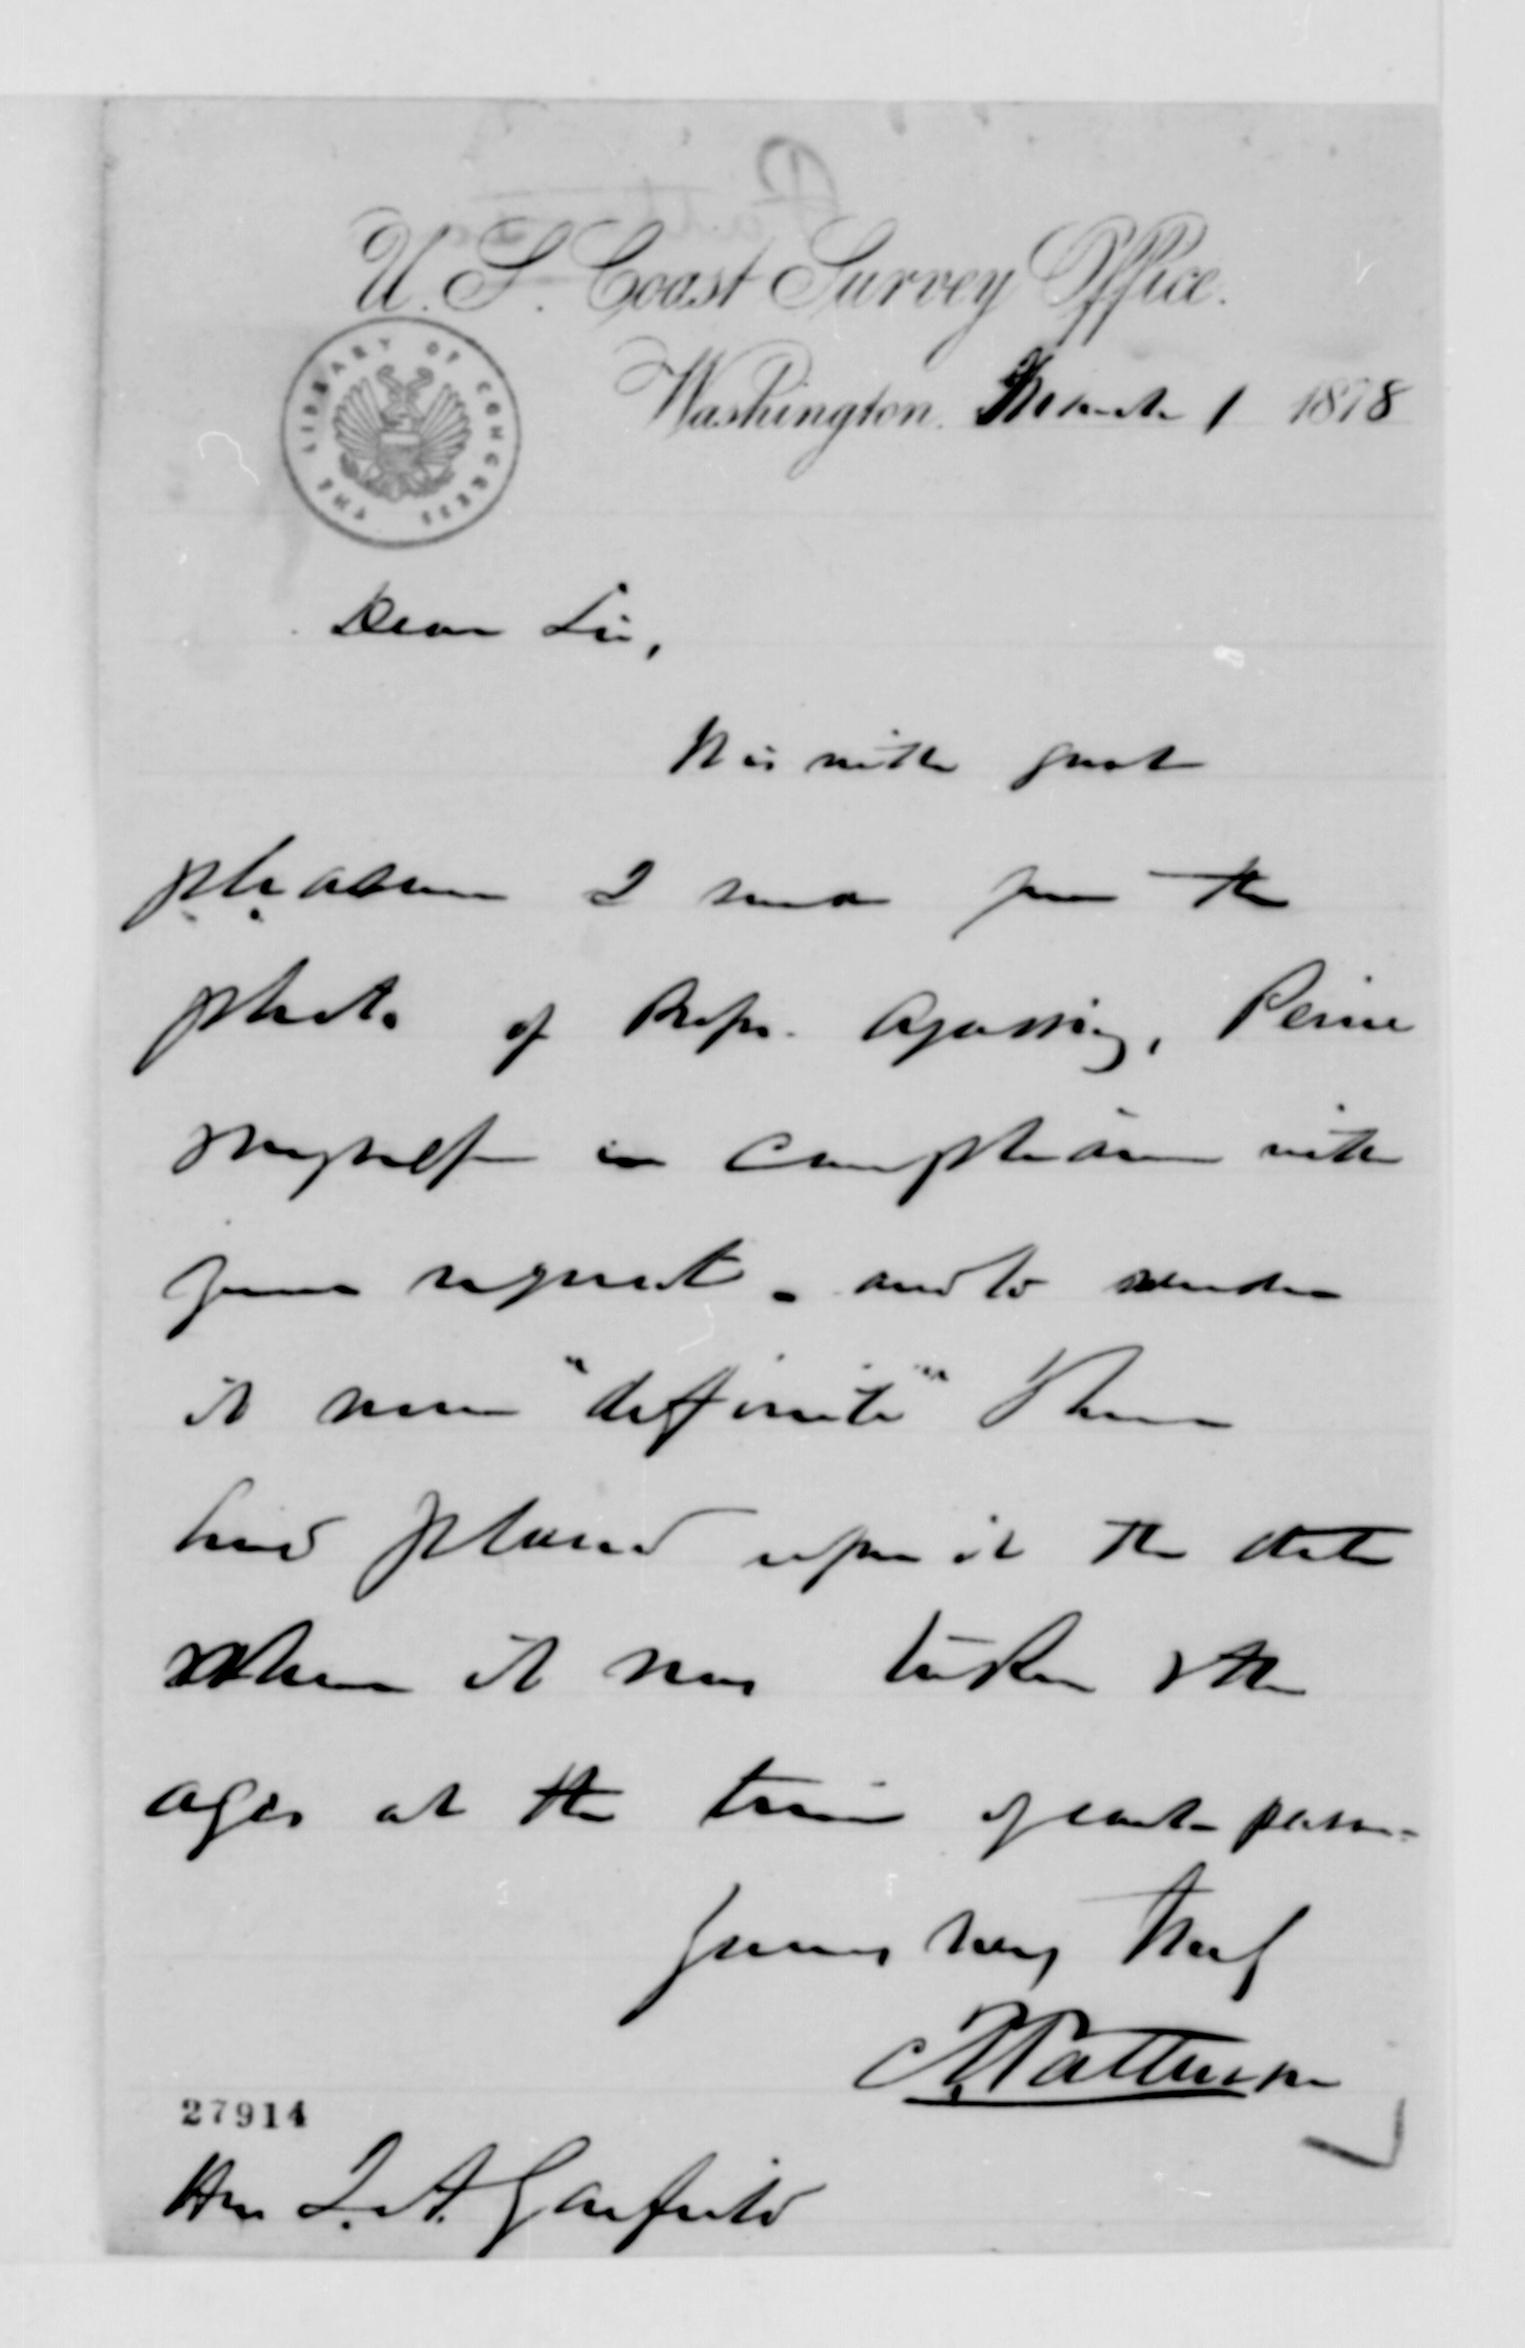 U.S. Coast Survey Office.
Washington. March 1 1878
THE LIBRARY OF CONGRESS
Dear Sir,
It is with great
pleasure I send you the
photo of Profs. Agassiz, Peirce
myself in compliance with
your request. and to render
it more "definite" I have
had placed upon it the date
when it was taken & the
ages at the time of each person.
Yours very truly
C. P. Patterson
27914
Hon J. A. Garfield